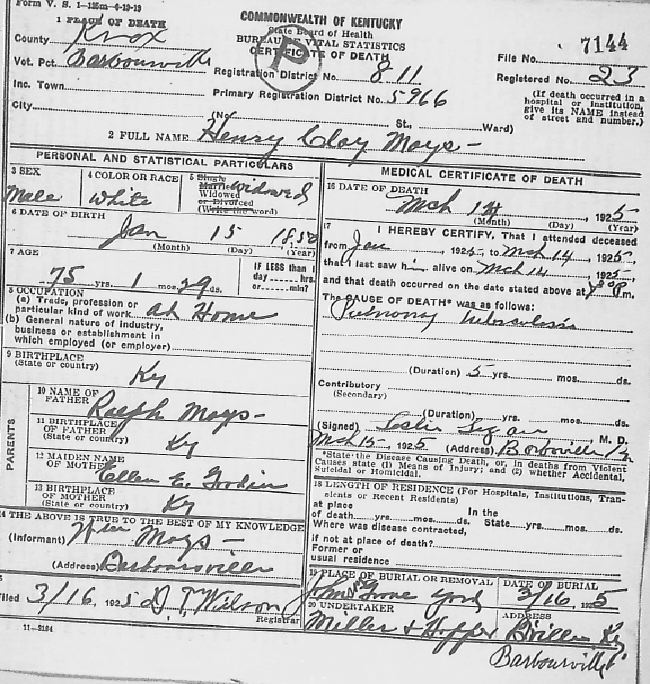 Form V. S. 1
COMMONWEALTH OF KENTUCKY
State Board of Health
BUREAU OF VITAL STATISTICS
CERTIFICATE OF DEATH
P
1 PLACE OF DEATH
County Knox
Vot. Pct. Barbourville
Inc. Town
City
Registration District No. 811
Primary Registration District No. 5966
File No. 7144
Registered No. 23
(If death occurred in a
hospital or institution,
give its NAME instead
of street and number.)
(No. St., Ward)
2 FULL NAME Henry Clay Mays
PERSONAL AND STATISTICAL PARTICULARS
3 SEX
Male
4 COLOR OR RACE
White
5 Single
Married
Widowed
or Divorced
(Write the word)
Widowed
6 DATE OF BIRTH
Jan 15
(Month) (Day) (Year)
7 AGE
75 yrs. 1 mos. 29 ds.
IF LESS than 1
day hrs.
or min?
8 OCCUPATION
(a) Trade, profession or
particular kind of work at Home
(b) General nature of industry,
business or establishment in
which employed (or employer)
9 BIRTHPLACE
(State or country) Ky
PARENTS
10 NAME OF
FATHER Ralph Mays
11 BIRTHPLACE
OF FATHER
(State or country) Ky
12 MAIDEN NAME
OF MOTHER Ellen E.
13 BIRTHPLACE
OF MOTHER
(State or country) Ky
14 THE ABOVE IS TRUE TO THE BEST OF MY KNOWLEDGE
(Informant) Wm Mays
(Address) Barbourville
Filed 3/16, 1925 D. T. Wilson
Registrar
11-3184
MEDICAL CERTIFICATE OF DEATH
16 DATE OF DEATH
Mch 14, 1925
(Month) (Day) (Year)
17 I HEREBY CERTIFY, That I attended deceased
from Jan, 1925, to Mch 14, 1925,
that I last saw him alive on Mch 14, 1925,
and that death occurred on the date stated above at P m.
The CAUSE OF DEATH* was as follows:
Pulmonary tuberculosis
(Duration) 5 yrs. mos. ds.
Contributory
(Secondary)
(Duration) yrs. mos. ds.
(Signed) Leslie Logan M. D.
Mch 15, 1925 (Address)
*State the Disease Causing Death, or, in deaths from Violent
Causes state (1) Means of Injury; and (2) whether Accidental,
Suicidal or Homicidal.
18 LENGTH OF RESIDENCE (For Hospitals, Institutions, Tran-
sients or Recent Residents)
At place In the
of death yrs. mos. ds. State yrs. mos. ds.
Where was disease contracted,
if not at place of death?
Former or
usual residence
19 PLACE OF BURIAL OR REMOVAL
Grove Yard
DATE OF BURIAL
3/16, 1925
20 UNDERTAKER
Miller & Hopper
ADDRESS
B'ville, Ky
Barbourville